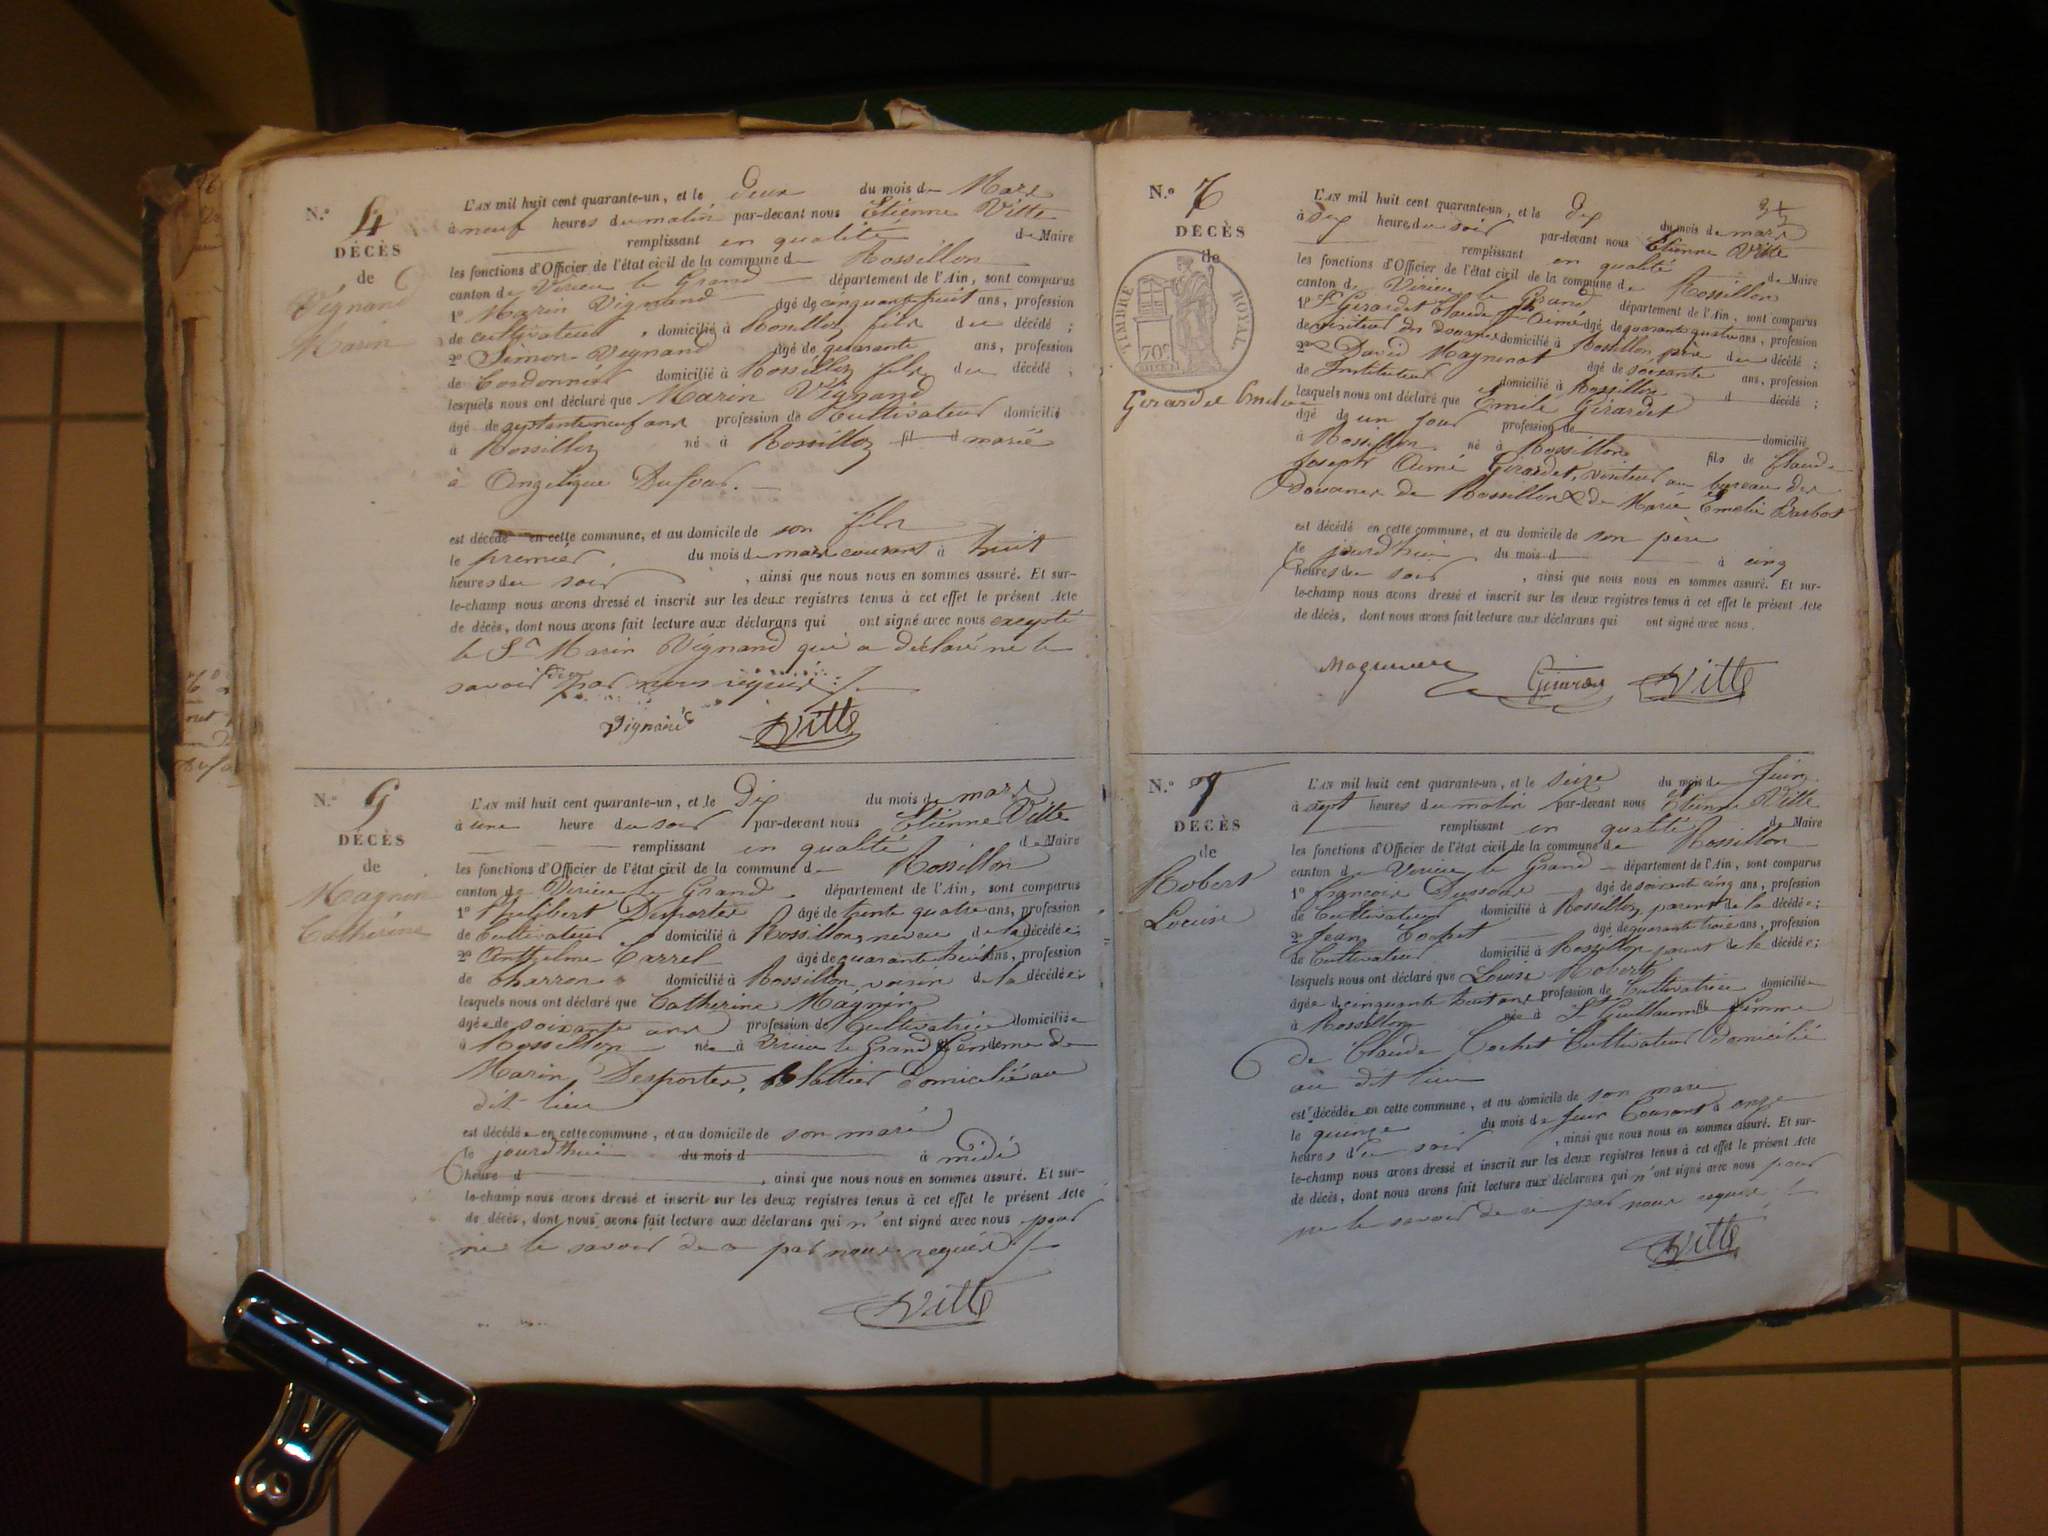 N.° 4
DÉCÈS
de
Vignand
Marin
L'AN mil huit cent quarante-un, et le deux du mois de Mars
à neuf heures du matin par-devant nous Etienne Vitte
remplissant en qualité de Maire
les fonctions d'Officier de l'état civil de la commune de Rossillon
canton de Virieu le Grand département de l'Ain, sont comparus
1° Marin Vignand âgé de cinquante huit ans, profession
de cultivateur, domicilié à Rossillon fils du décédé ;
2° Simon Vignand âgé de quarante ans, profession
de Cordonnier domicilié à Rossillon fils du décédé,
lesquels nous ont déclaré que Marin Vignand
âgé de septante neuf ans profession de Cultivateur domicilié
à Rossillon né à Rossillon fil d marié
à Angelique Dufour.
est décédé en cette commune, et au domicile de son fils
le premier du mois de mars courant à huit
heures du soir, ainsi que nous nous en sommes assuré. Et sur-
le-champ nous avons dressé et inscrit sur les deux registres tenus à cet effet le présent Acte
de décès, dont nous avons fait lecture aux déclarans qui ont signé avec nous excepté
le Sr Marin Vignand qui a déclaré ne le
savoir de ce par nous requis
Vignand Vitte
N.° 5
DÉCÈS
de
Magnin
Catherine
L'AN mil huit cent quarante-un, et le Dix du mois de mars
à une heure du soir par-devant nous Etienne Vitte
remplissant en qualité de Maire
les fonctions d'Officier de l'état civil de la commune de Rossillon
canton de Virieu le Grand département de l'Ain, sont comparus
1° Philibert Desportes âgé de trente quatre ans, profession
de Cultivateur domicilié à Rossillon, neveu de la décédée
2° Anthelme Carrel âgé de quarante huit ans, profession
de charron domicilié à Rossillon voisin de la décédée
lesquels nous ont déclaré que Catherine Magnin
âgée de soixante ans profession de Cultivatrice domiciliée
à Rossillon née à Virieu le Grand femme de
Marin Desportes, domicilié au
dit lieu
est décédée en cette commune, et au domicile de son mari
le jourd'hui du mois d à midi
heure d , ainsi que nous nous en sommes assuré. Et sur-
le-champ nous avons dressé et inscrit sur les deux registres tenus à cet effet le présent Acte
de décès, dont nous avons fait lecture aux déclarans qui n'ont signé avec nous pour
ne le savoir de ce par nous requis
Vitte
N.° 6
DÉCÈS
de
TIMBRE ROYAL
70c
Girardet Emile
L'AN mil huit cent quarante-un, et le dix du mois de mars
à six heures du soir par-devant nous Etienne Vitte
remplissant en qualité de Maire
les fonctions d'Officier de l'état civil de la commune de Rossillon
canton de Virieu le Grand département de l'Ain, sont comparus
1° Sr Girardet Claude Jph Aimé âgé de quarante quatre ans, profession
de visiteur des douanes domicilié à Rossillon père du décédé ;
2° David Magnenot âgé de soixante ans, profession
de Instituteur domicilié à Rossillon d décédé ;
lesquels nous ont déclaré que Emile Girardet
âgé de un jour profession de domicilié
à Rossillon né à Rossillon fils de Claude
Joseph Aimé Girardet, visiteur au bureau des
Douanes de Rossillon & de Marie Emelie Barbot
est décédé en cette commune, et au domicile de son père
le jourd'hui du mois d à cinq
heures du soir, ainsi que nous nous en sommes assuré. Et sur-
le-champ nous avons dressé et inscrit sur les deux registres tenus à cet effet le présent Acte
de décès, dont nous avons fait lecture aux déclarans qui ont signé avec nous.
Vitte
N.° 7
DÉCÈS
de
Robert
Louise
L'AN mil huit cent quarante-un, et le seize du mois de Juin
à sept heures du matin par-devant nous Etienne Vitte
remplissant en qualité de Maire
les fonctions d'Officier de l'état civil de la commune de Rossillon
canton de Virieu le Grand département de l'Ain, sont comparus
1° François âgé de soixante cinq ans, profession
de Cultivateur domicilié à Rossillon, parent de la décédée ;
2° Jean Cochet âgé de quarante trois ans, profession
de Cultivateur domicilié à Rossillon parent de la décédée ;
lesquels nous ont déclaré que Louise Robert
âgée de cinquante huit ans profession de Cultivatrice domiciliée
à Rossillon née à St Guillaume fil femme
de Claude Cochet Cultivateur Domicilié
au dit lieu
est décédée en cette commune, et au domicile de son mari
le quinze du mois de Juin Courant à onze
heures du soir, ainsi que nous nous en sommes assuré. Et sur-
le-champ nous avons dressé et inscrit sur les deux registres tenus à cet effet le présent Acte
de décès, dont nous avons fait lecture aux déclarans qui n'ont signé avec nous pour
ne le savoir de ce par nous requis
Vitte